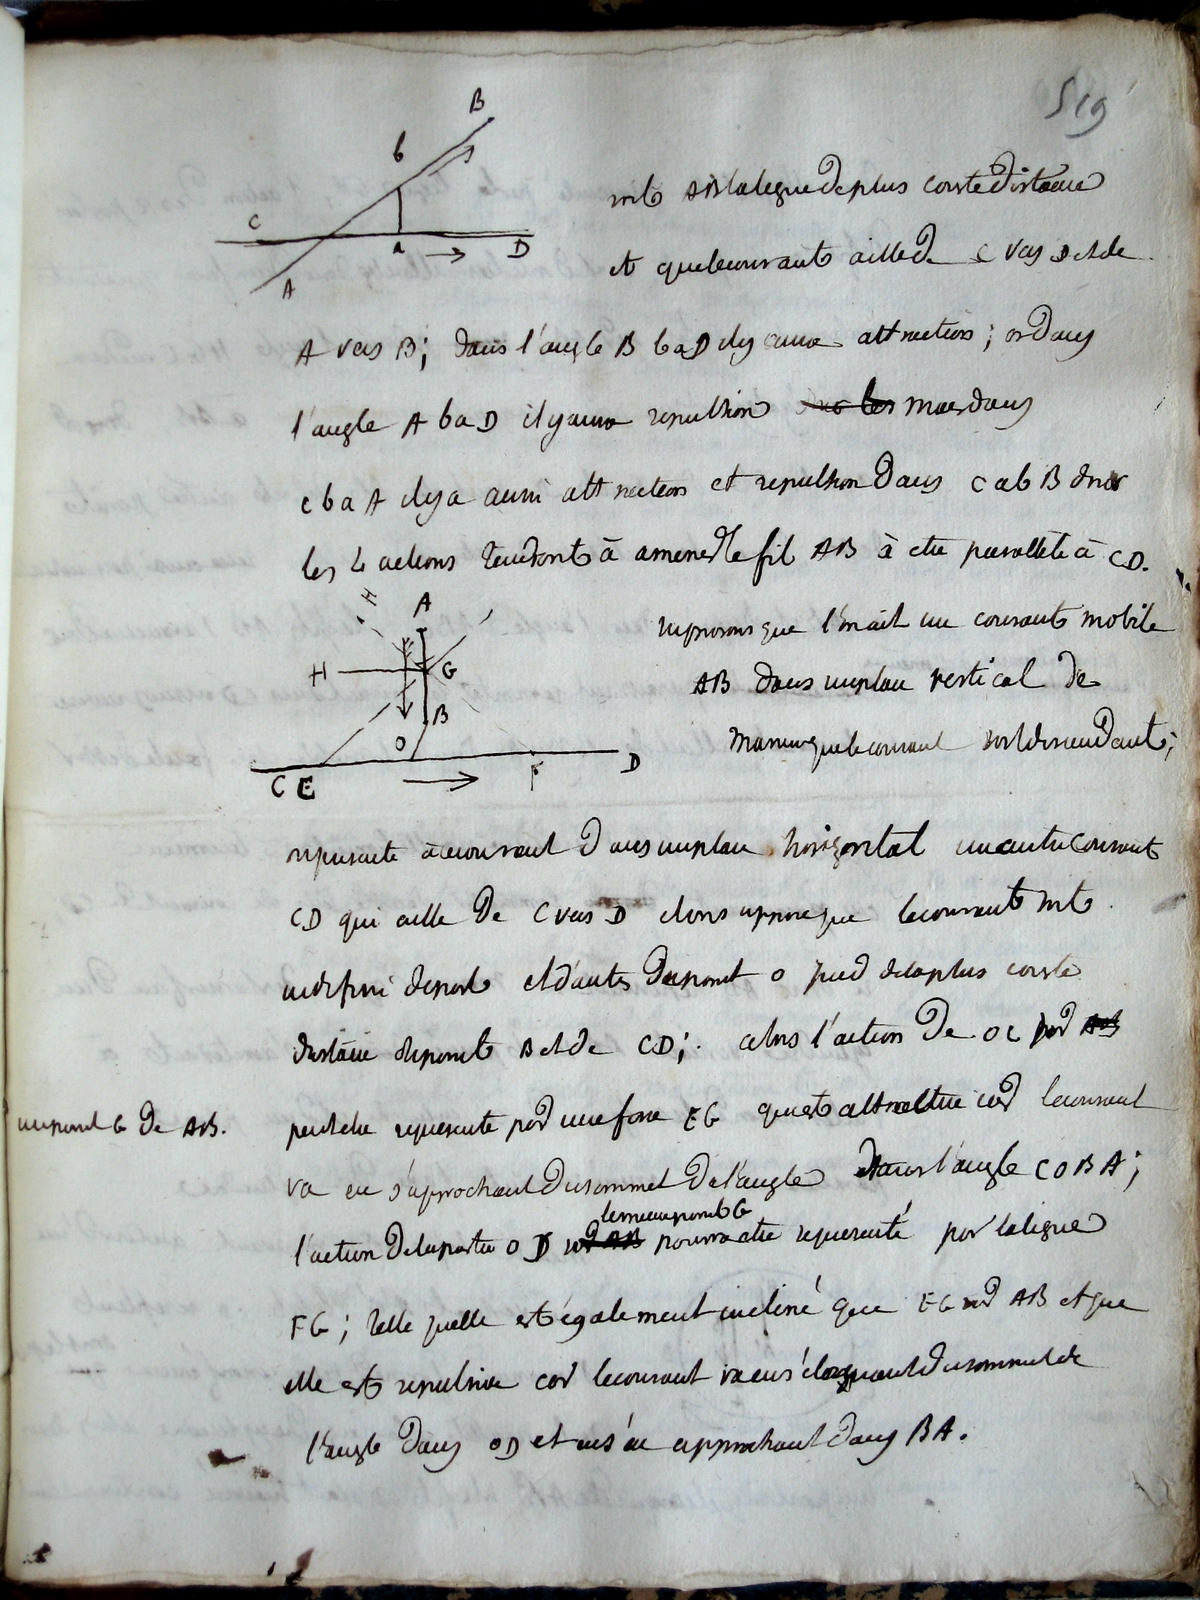 519
B
b
C
a
D
A
soit AB la ligne de plus courte distance
et que le courant aille de C vers D et de
A vers B; dans l'angle B b a D il y aura attraction; or dans
l'angle A b a D il y aura repulsion mais dans
c b a A il y a aussi attraction et repulsion dans C a b B donc
les 4 actions tendront à amener le fil AB à etre parallele à CD.
H
A
H
G
B
O
C E
F
D
supposons que l'on ait un courant mobile
AB dans un plan vertical de
maniere que le courant soit descendant;
on presente à ce courant dans un plan horizontal un autre courant
CD qui aille de C vers D alors suppose que le courant soit
indefini de part et d'autre du point O pied de la plus courte
distance du point B et de CD; alors l'action de OC sur AB
un point G de AB.
peut etre representé par une force EG qui est attractive car le courant
va en s'approchant du sommet de l'angle dans l'angle COBA;
le meme point G
l'action de la partie OD sur AB pourra etre representé par la ligne
FG; telle quelle est également incliné que EG sur AB et que
elle est repulsive car le courant va en s'eloignant du sommet de
l'angle dans OD et en s'en approchant dans BA.